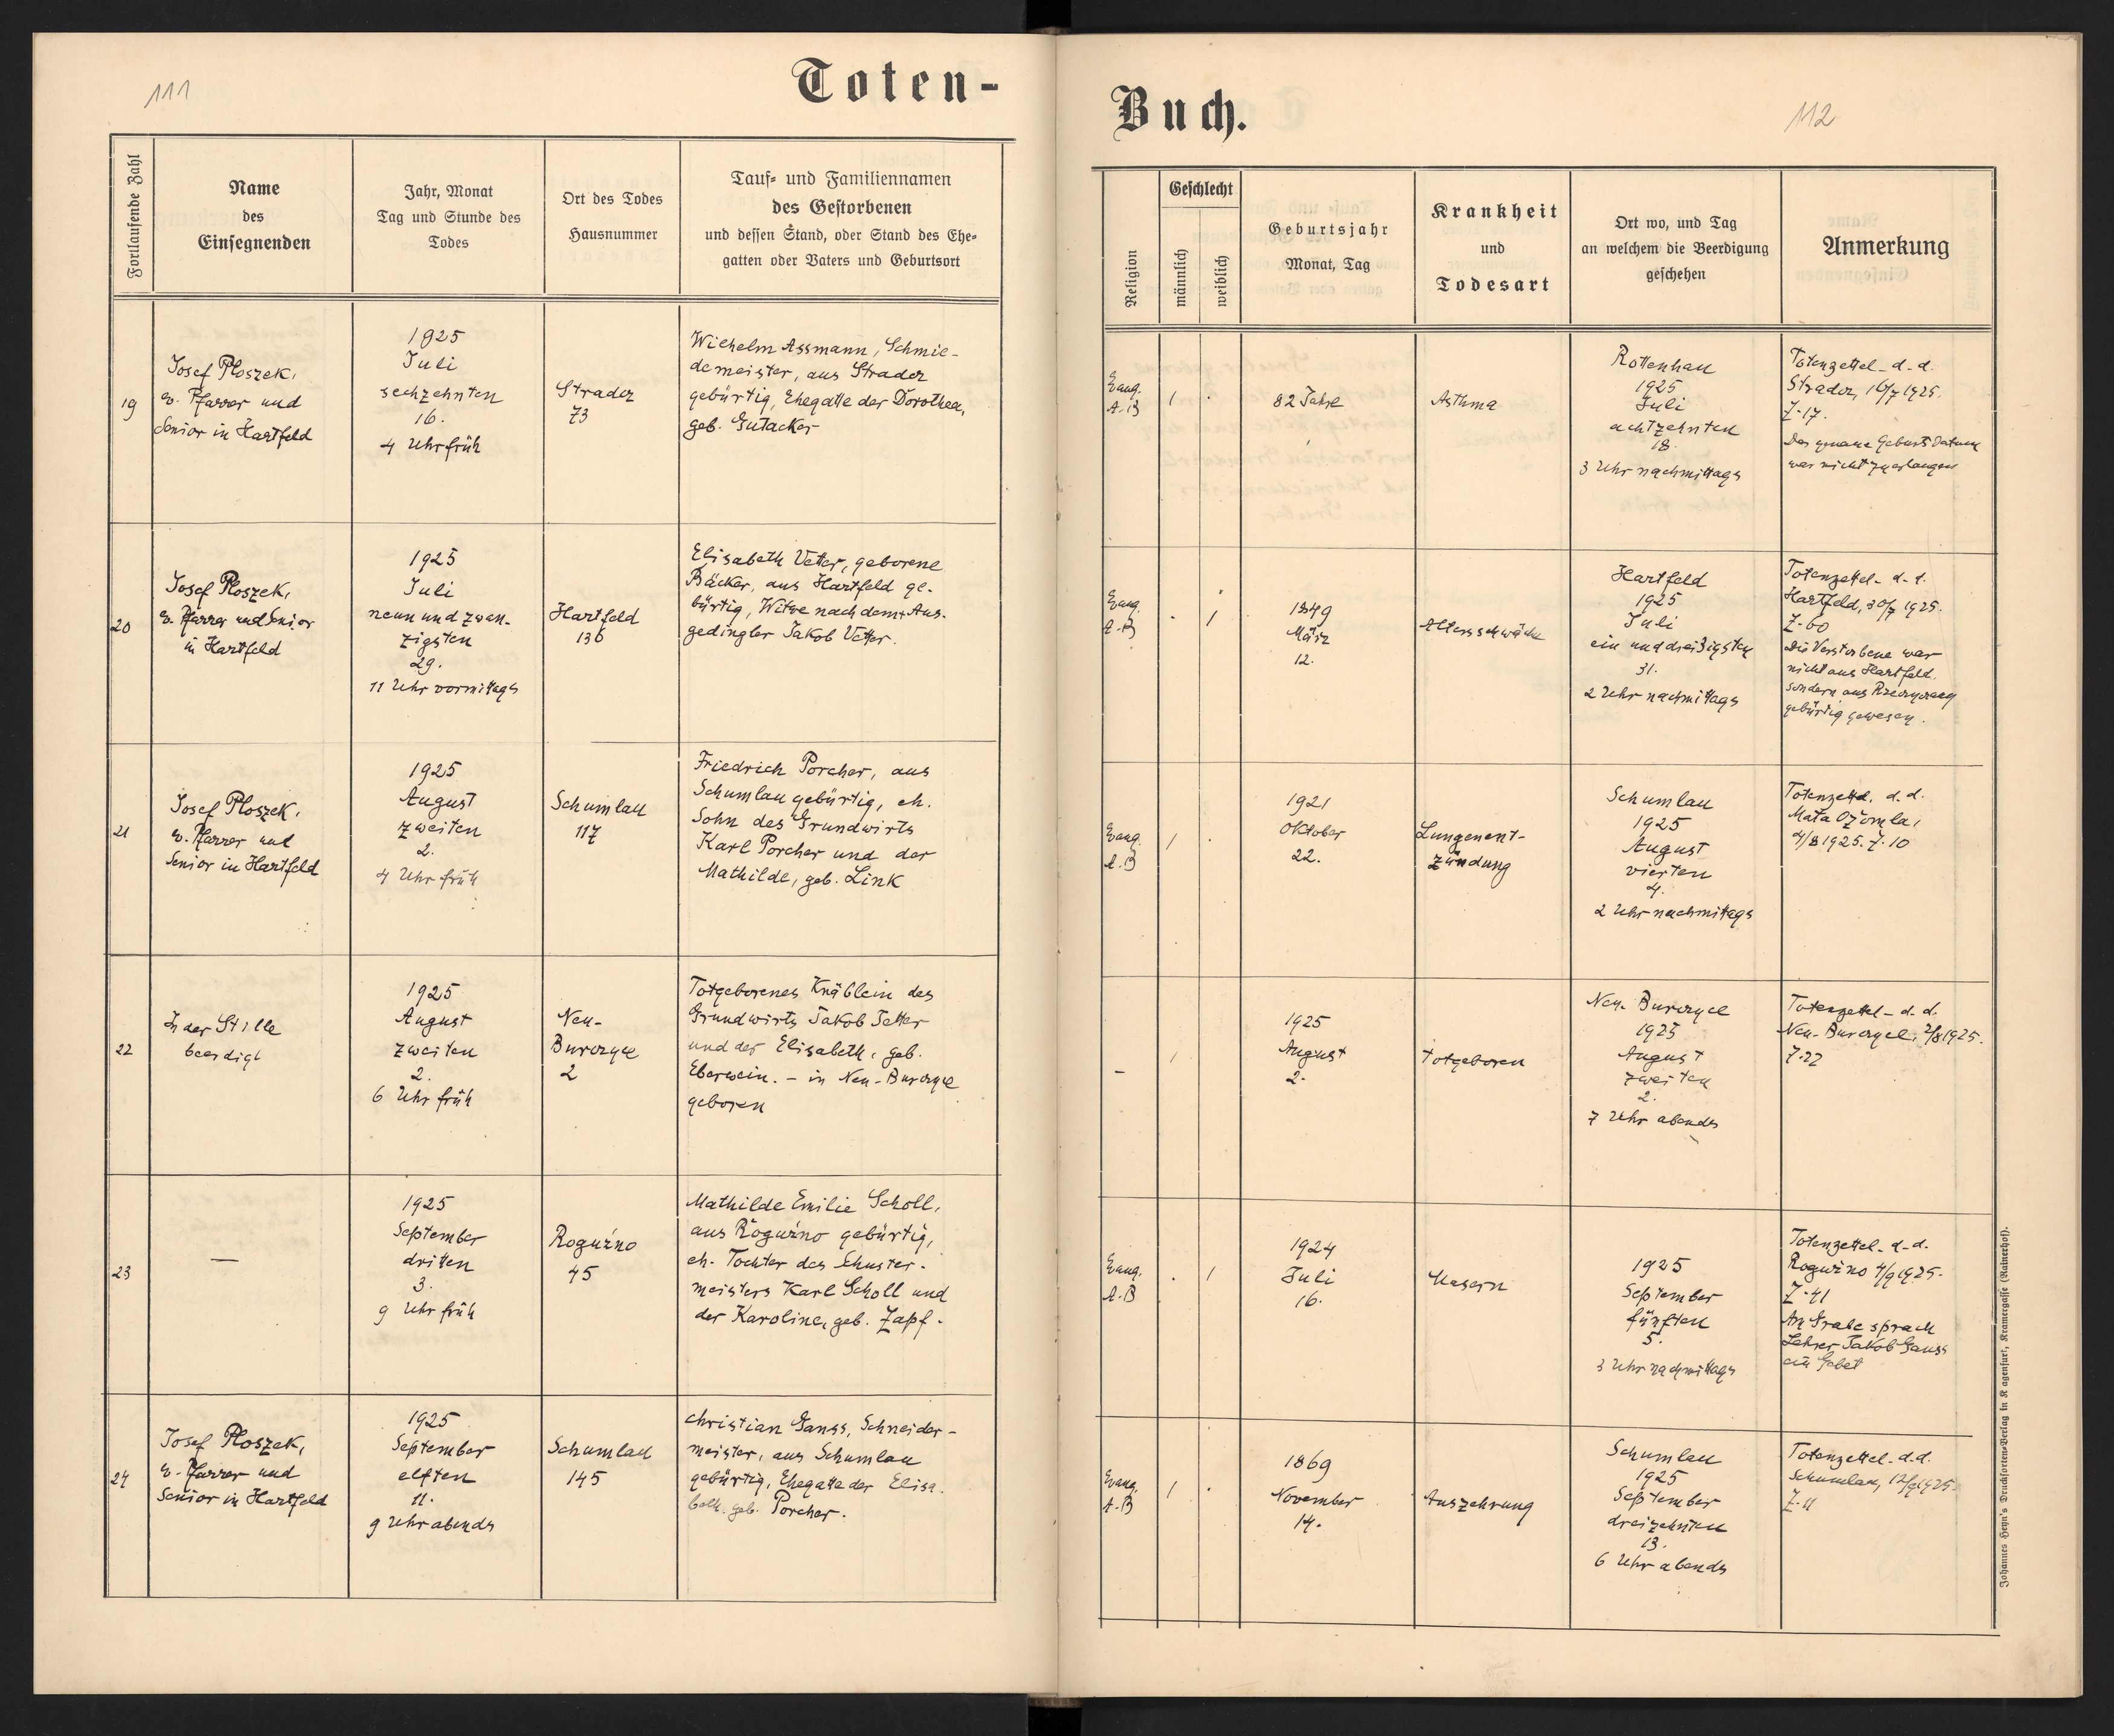 111
Toten-
Fortlaufende Zahl
Name
des
Einsegnenden
Jahr, Monat
Tag und Stunde des
Todes
Ort des Todes
Hausnummer
Tauf- und Familiennamen
des Gestorbenen
und dessen Stand, oder Stand des Ehe-
gatten oder Vaters und Geburtsort
19
Josef Ploszek,
ev. Pfarrer und
Senior in Hartfeld
1925
Juli
sechzehnten
16.
4 Uhr früh
Stradez
73
Wilhelm Assmann, Schmie-
demeister, aus Stradez
gebürtig, Ehegatte der Dorothea,
geb. Gutacker
20
Josef Ploszek,
ev. Pfarrer und Senior
in Hartfeld
1925
Juli
neun und zwan-
zigsten
29.
11 Uhr vormittags
Hartfeld
136
Elisabeth Vetter, geborene
Bäcker, aus Hartfeld ge-
bürtig, Witwe nach dem + Aus-
gedingler Jakob Vetter.
21
Josef Ploszek,
ev. Pfarrer und
Senior in Hartfeld
1925
August
zweiten
2.
4 Uhr früh
Schumlau
117
Friedrich Porcher, aus
Schumlau gebürtig, eh.
Sohn des Grundwirts
Karl Porcher und der
Mathilde, geb. Link
22
In der Stille
beerdigt
1925
August
zweiten
2.
6 Uhr früh
Neu-
Burczyce
2
Totgeborenes Knäblein des
Grundwirts Jakob Tetter
und der Elisabeth, geb.
Eberwein. - in Neu-Burczyce
geboren
23
—
1925
September
dritten
3.
9 Uhr früh
Roguźno
45
Mathilde Emilie Scholl,
aus Roguźno gebürtig,
eh. Tochter des Schuster-
meisters Karl Scholl und
der Karoline, geb. Zapf.
24
Josef Ploszek,
ev. Pfarrer und
Senior in Hartfeld
1925
September
elften
11.
9 Uhr abends
Schumlau
145
Christian Ganss, Schneider-
meister, aus Schumlau
gebürtig, Ehegatte der Elisa-
beth, geb. Porcher.
Buch.
112
Religion
Geschlecht
männlich
weiblich
Geburtsjahr
Monat, Tag
Krankheit
und
Todesart
Ort wo, und Tag
an welchem die Beerdigung
geschehen
Anmerkung
Evang.
A.B
1
82 Jahre
Asthma
Rottenhan
1925
Juli
achtzehnten
18.
3 Uhr nachmittags
Totenzettel - d. d.
Stradez, 16/7 1925.
Z. 17.
Das genaue Geburtsdatum
war nicht zu erlangen
Evang.
A.B
1
1849
März
12.
Altersschwäche
Hartfeld
1925
Juli
ein und dreißigsten
31.
2 Uhr nachmittags
Totenzettel - d. d.
Hartfeld, 30/7 1925.
Z. 60
Die Verstorbene war
nicht aus Hartfeld,
sondern aus
gebürtig gewesen.
Evang.
A.B
1
1921
Oktober
22.
Lungenent-
zündung
Schumlau
1925
August
vierten
4.
2 Uhr nachmittags
Totenzettel. d. d.
Mała Ożomla,
4/8 1925. Z. 10
-
1
1925
August
2.
totgeboren
Neu-Burczyce
1925
August
zweiten
2.
7 Uhr abends
Totenzettel - d. d.
Neu-Burczyce, 2/8 1925.
Z. 22
Evang.
A.B
1
1924
Juli
16.
Masern
1925
September
fünften
5.
3 Uhr nachmittags
Totenzettel - d. d.
Roguźno 4/9 1925.
Z. 41
Am Grabe sprach
Lehrer Jakob Ganss
ein Gebet
Evang.
A.B
1
1869
November
14.
Auszehrung
Schumlau
1925
September
dreizehnten
13.
6 Uhr abends
Totenzettel - d. d.
Schumlau, 12/9 1925.
Z. 11
Johannes Heyn's Drucksorten-Verlag in Klagenfurt, Kramergasse (Rainerhof).